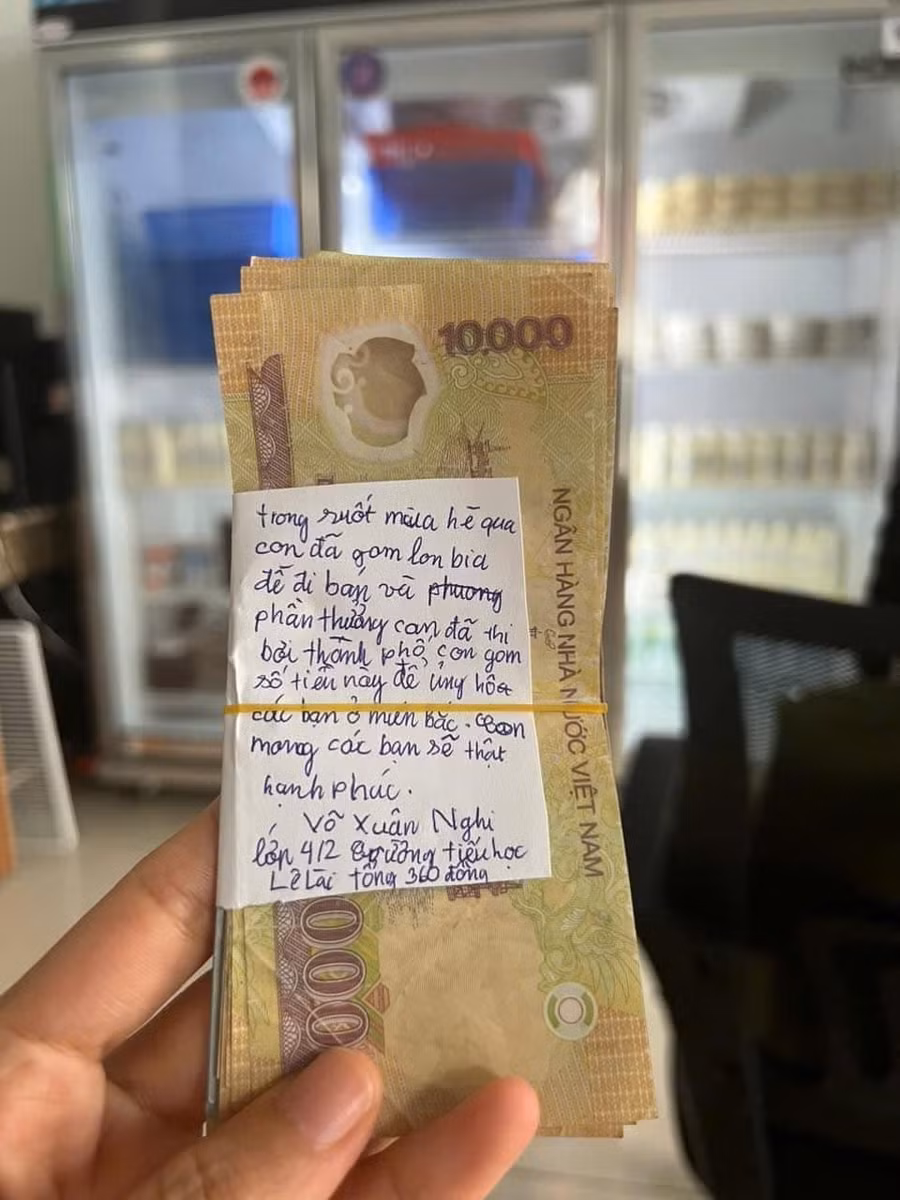 10.000
NGÂN HÀNG NHÀ NƯỚC VIỆT NAM
trong suốt mùa hè qua
con đã gom lon bia
để đi bán và phương
phần thưởng con đã thi
bơi thành phố con gom
số tiền này để ủng hộ
các bạn ở miền Bắc. Con
mong các bạn sẽ thật
hạnh phúc.
Võ Xuân Nghi
lớp 4/2 trường tiểu học
Lê Lai tổng 360 đồng
000